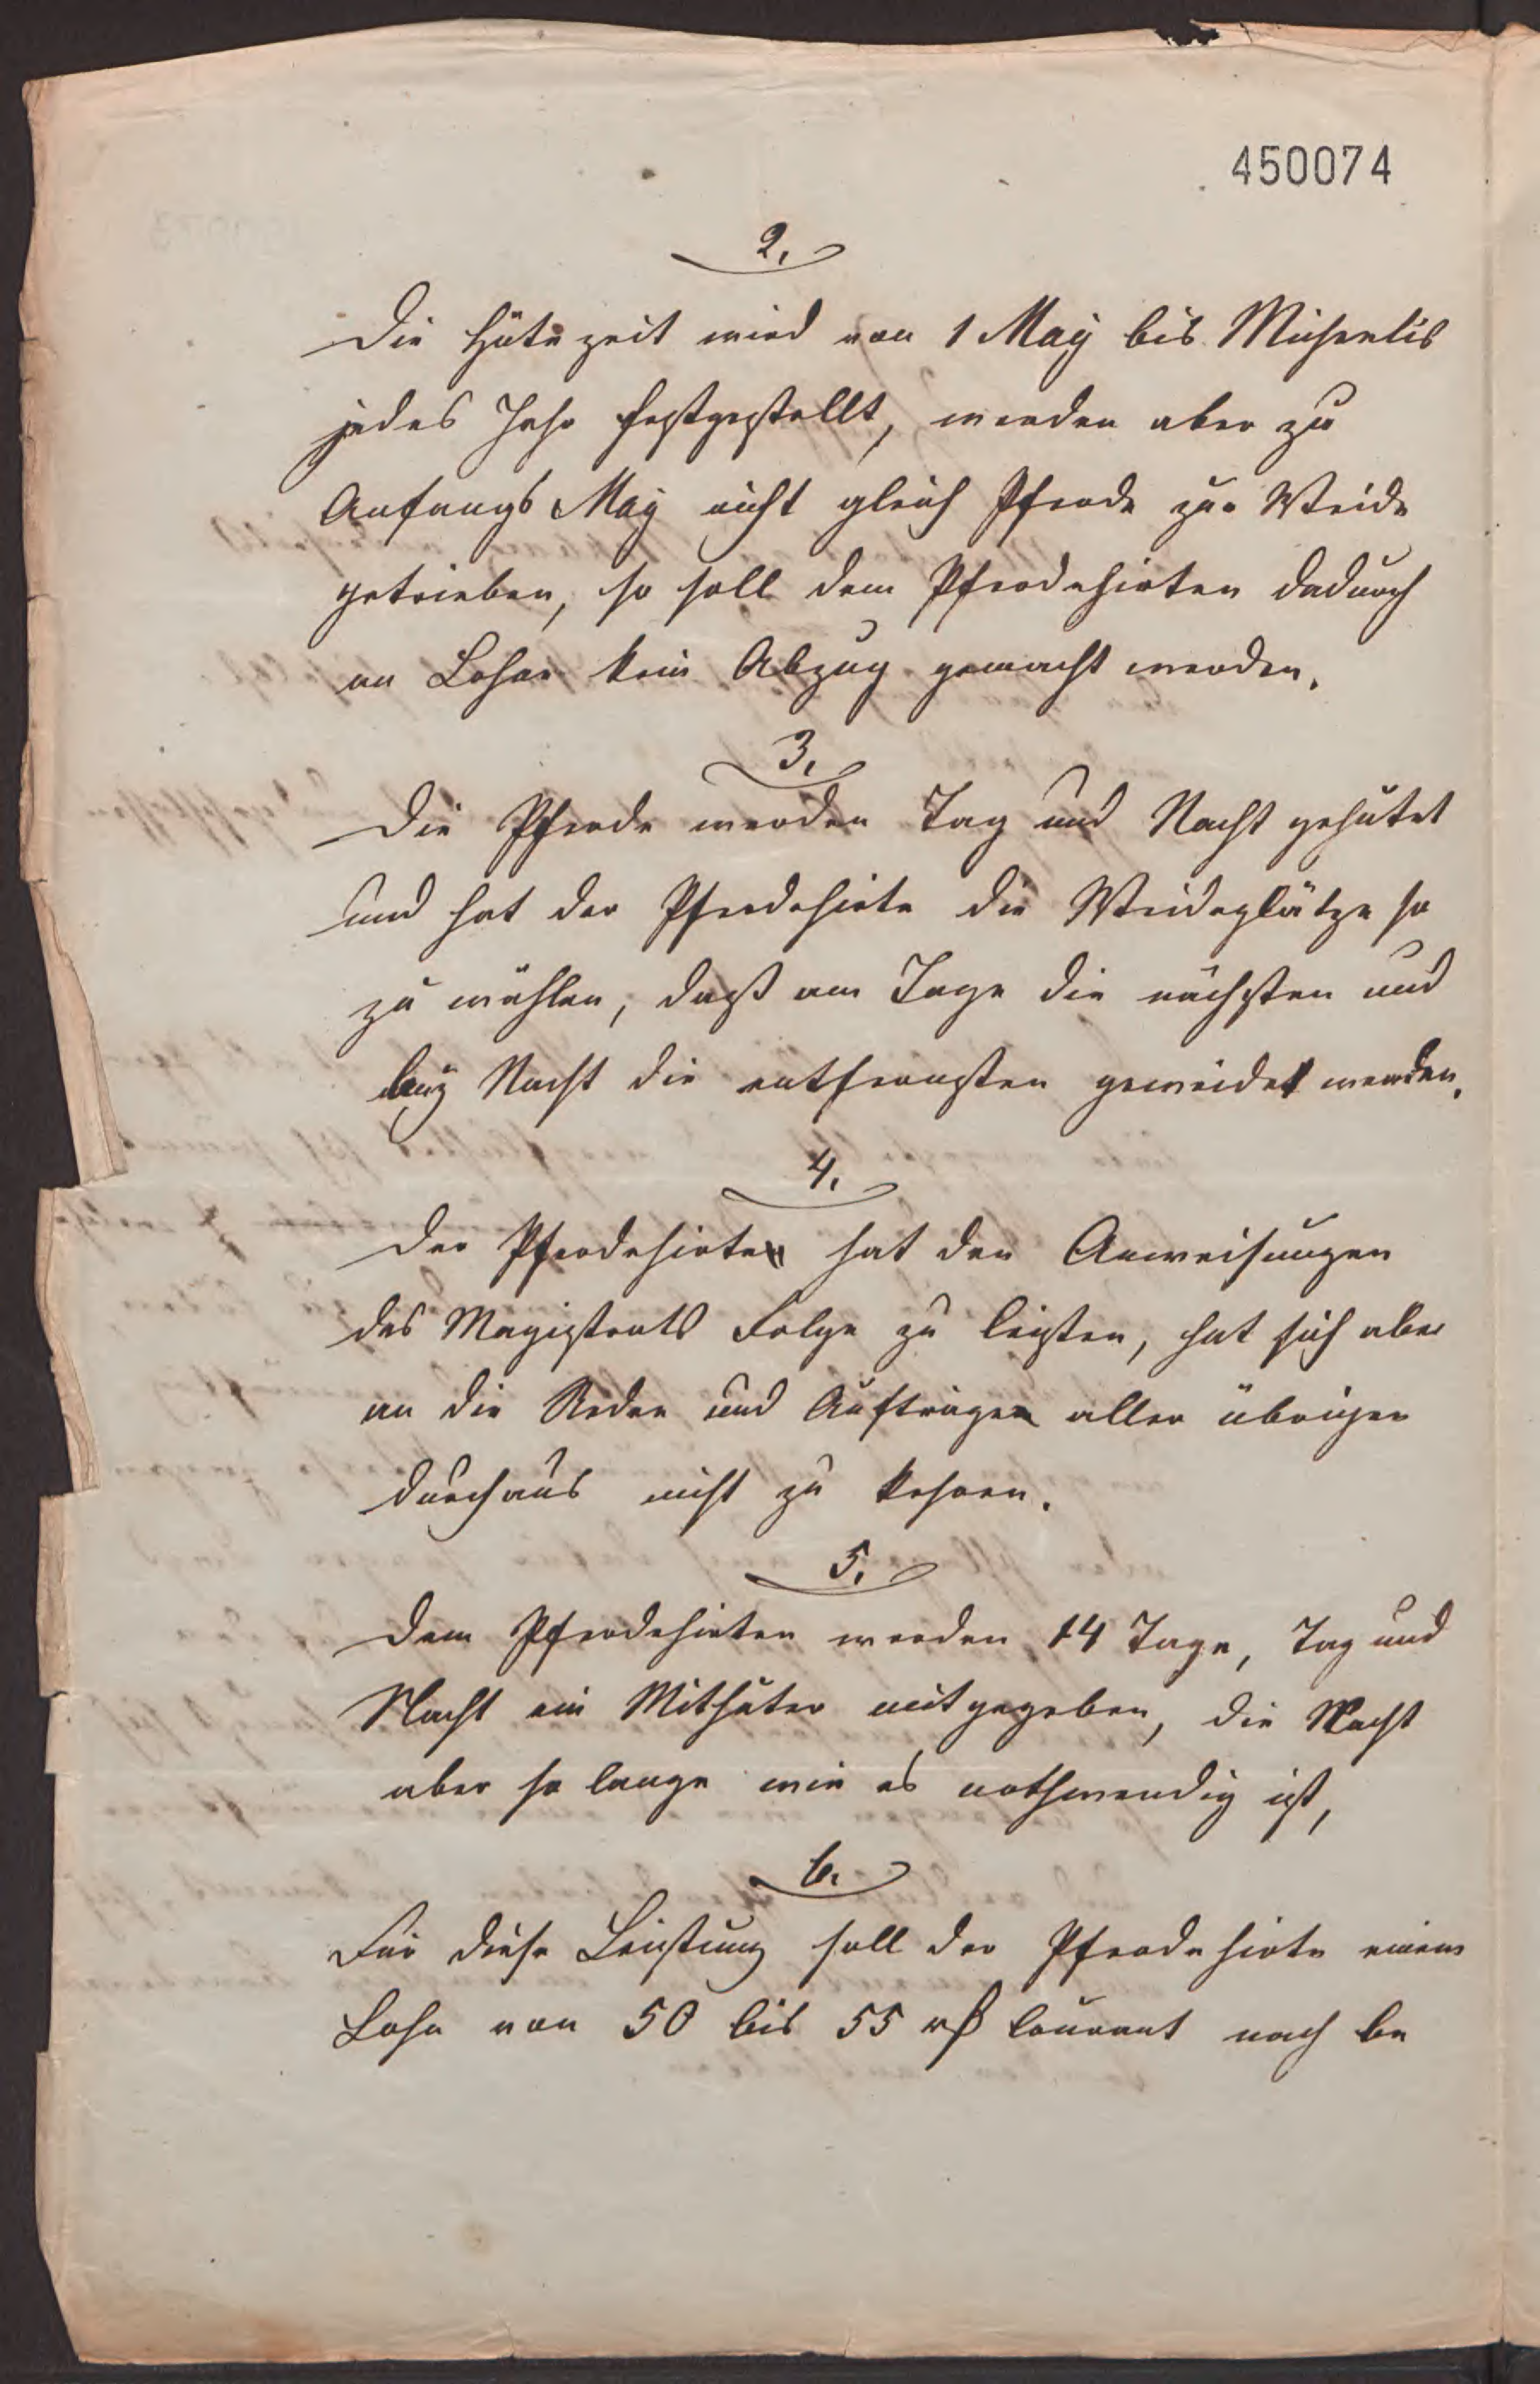 450074
2.
Die Hütezeit wird von 1 May bis Michaelis
jedes Jahr festgestellt, werden aber zu
Anfangs May nicht gleich Pferde zur Weide
getrieben, so soll dem Pferdehirten dadurch
an Lohne kein Abzug gemacht werden.
3.
Die Pferde werden Tag und Nacht gehütet
und hat der Pferdehirte die Weideplätze so
zu wählen, daß am Tage die nächsten und
bey Nacht die entfernsten geweidet werden.
4.
Der Pferdehirte hat den Anweisungen
des Magistrats Folge zu leisten, hat sich aber
an die Reden und Aufträgen aller übrigen
durchaus nicht zu kehren.
5.
Dem Pferdehirten werden 14 Tage, Tag und
Nacht ein Mithüter mitgegeben, die Nacht
aber so lange wie es nothwendig ist,
6.
Für diese Leistung soll der Pferdehirte einem
Lohn von 50 bis 55 rß Courant nach be